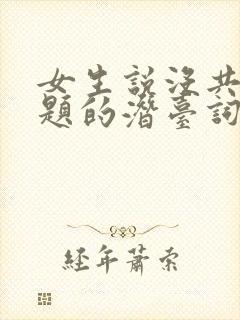 女生說沒共
題的潛臺詞
經年蕭索